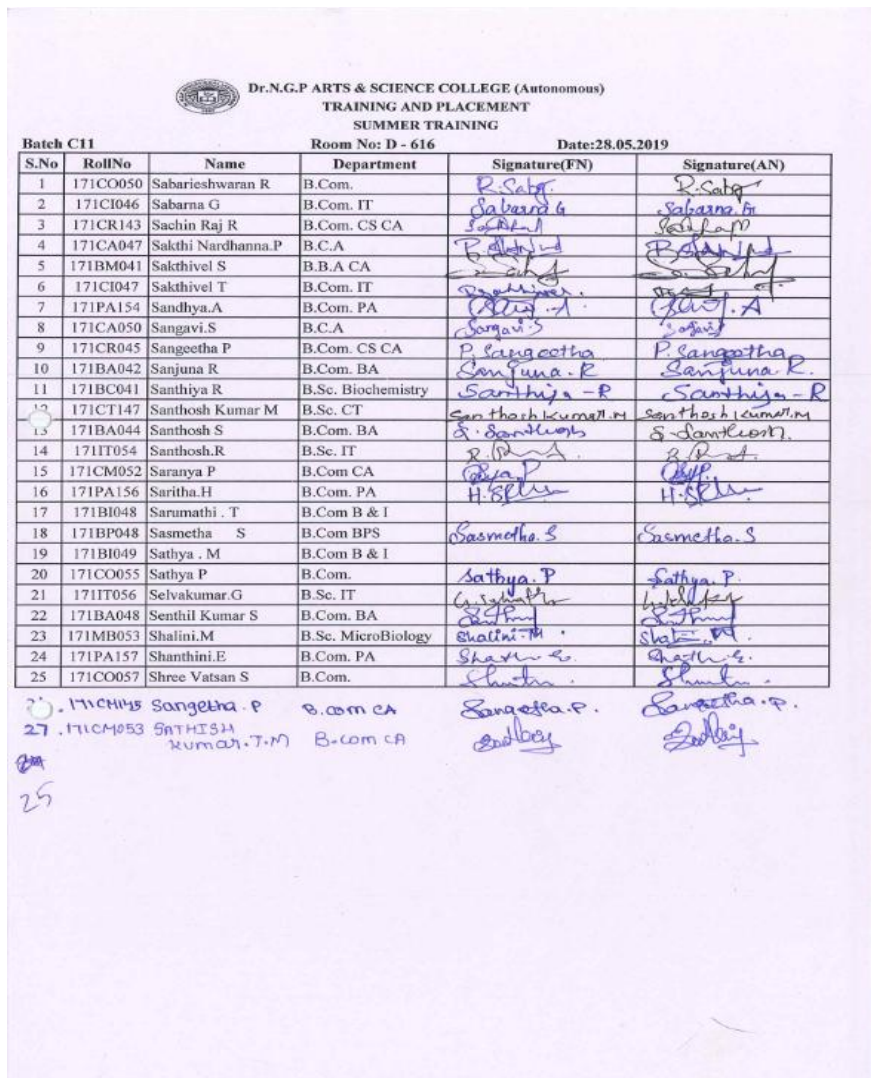 Dr.N.G.P ARTS & SCIENCE COLLEGE (Autonomous)
TRAINING AND PLACEMENT
SUMMER TRAINING
Batch C11 Room No: D - 616 Date:28.05.2019
S.No RollNo Name Department Signature(FN) Signature(AN)
1 171CO050 Sabarieshwaran R B.Com. R.Sabr. R.Sabr
2 171CI046 Sabarna G B.Com. IT Sabarna G Sabarna.G
3 171CR143 Sachin Raj R B.Com. CS CA
4 171CA047 Sakthi Nardhanna.P B.C.A
5 171BM041 Sakthivel S B.B.A CA
6 171CI047 Sakthivel T B.Com. IT
7 171PA154 Sandhya.A B.Com. PA
8 171CA050 Sangavi.S B.C.A Sangavi.S
9 171CR045 Sangeetha P B.Com. CS CA P. Sangeetha P. Sangeetha
10 171BA042 Sanjuna R B.Com. BA Sanjuna.R Sanjuna.R.
11 171BC041 Santhiya R B.Sc. Biochemistry Santhiya - R Santhiya - R
12 171CT147 Santhosh Kumar M B.Sc. CT Santhosh Kumar.M Santhosh Kumar.M
13 171BA044 Santhosh S B.Com. BA S. Santhosh S. Santhosh.
14 171IT054 Santhosh.R B.Sc. IT
15 171CM052 Saranya P B.Com CA
16 171PA156 Saritha.H B.Com. PA
17 171BI048 Sarumathi . T B.Com B & I
18 171BP048 Sasmetha S B.Com BPS Sasmetha.S Sasmetha.S
19 171BI049 Sathya . M B.Com B & I
20 171CO055 Sathya P B.Com. Sathya.P Sathya.P.
21 171IT056 Selvakumar.G B.Sc. IT
22 171BA048 Senthil Kumar S B.Com. BA
23 171MB053 Shalini.M B.Sc. MicroBiology Shalini.M
24 171PA157 Shanthini.E B.Com. PA
25 171CO057 Shree Vatsan S B.Com.
. 171CM145 Sangetha.P B.com CA Sangetha.P. Sangetha.P.
27. 171CM053 SATHISH
Kumar.J.M B.com CA
25